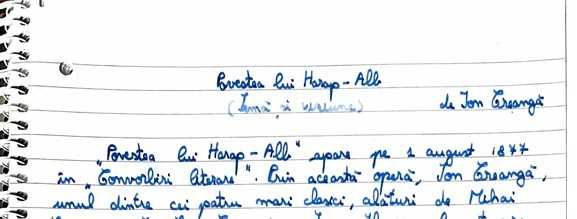 Povestea lui Harap-Alb
(Temă și viziune)
de Ion Creangă
„Povestea lui Harap-Alb" apare pe 1 august 1877
în „Convorbiri literare". Prin această operă, Ion Creangă,
unul dintre cei patru mari clasici, alături de Mihai